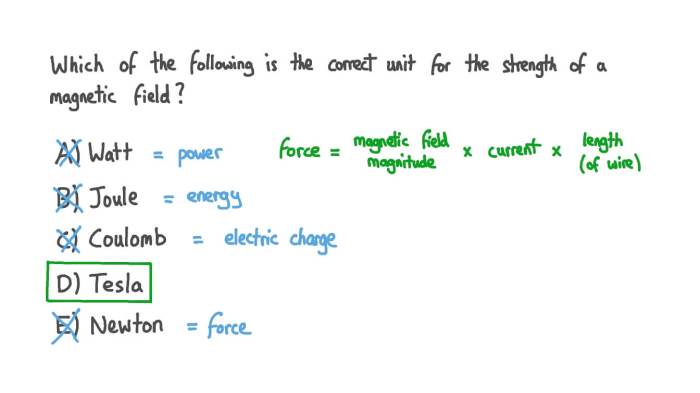 Which of the following is the correct unit for the strength of a
magnetic field?
A) Watt = power
force = magnetic field magnitude x current x length (of wire)
B) Joule = energy
C) Coulomb = electric charge
D) Tesla
E) Newton = force